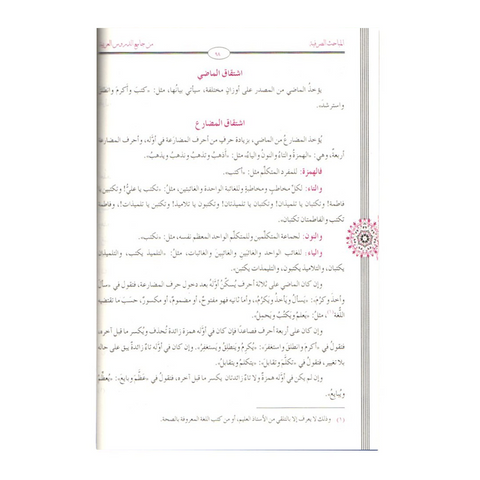 المباحث الصرفية
من جامع الدروس العربية
٦٨
اشتقاق الماضي
يؤخذُ الماضي من المصدر على أوزانٍ مختلفة، سيأتي بيانُها، مثل: «كتبَ وأكرمَ وانطلقَ
واسترشدَ».
اشتقاق المضارع
يُؤخذ المضارعُ من الماضي، بزيادة حرفٍ من أحرف المضارَعة في أوَّله، وأحرف المضارعة
أربعةٌ، وهي: «الهمزةُ والتاءُ والنونُ والياءُ»، مثل: «أذهبُ وتذهبُ ونذهبُ ويذهبُ».
فالهمزة: للمفرد المتكلّم مثل: «أكتب».
والتاء: لكلّ مخاطَبٍ ومخاطَبةٍ وللغائبة الواحدة والغائبتين، مثل: «تكتب يا عليُّ! وتكتبين، يا
فاطمة! وتكتبان يا تلميذان! وتكتبان يا تلميذتان! وتكتبون يا تلاميذ! وتكتبن يا تلميذات!، وفاطمة
تكتب والفاطمتان تكتبان».
والنون: لجماعة المتكلّمين وللمتكلّم الواحد المعظم نفسه، مثل: «نكتب».
والياء: للغائب الواحد والغائبين والغائبات، مثل: «التلميذ يكتب، والتلميذان
يكتبان، والتلاميذ يكتبون، والتلميذات يكتبن».
وإن كان الماضي على ثلاثة أحرف يُسكَّنُ أوَّلُه بعد دخول حرف المضارعة، فتقول في «سألَ
وأخذَ وكرُمَ»: «يَسألُ ويأخذُ ويَكرُمُ»، وأما ثانيه فهو مفتوحٌ، أو مضمومٌ، أو مكسورٌ، حسَبَ ما تقتضيه
اللُّغة(١)، مثل: «يَعلمُ ويَكتُبُ ويَحمِلُ».
وإن كان على أربعة أحرف فصاعدًا فإن كان في أوَّله همزة زائدة تُحذف ويُكسر ما قبل آخره،
فتقول في «أكرمَ وانطلقَ واستغفرَ»: «يُكرِمُ ويَنطلِقُ ويستغفِرُ». وإن كان في أوله تاءٌ زائدةٌ يبق على حاله
بلا تغيير، فتقول في «تكلَّمَ وتقابلَ»: «يتكلَّمُ ويتقابلُ».
وإن لم يكن في أوَّله همزةٌ ولا تاءٌ زائدتان، يكسر ما قبل آخره، فتقول في «عظَّمَ وبايعَ»: «يُعظِّمُ
ويُبايِعُ».
(١) وذلك لا يعرف إلا بالتلقي من الأستاذ العليم، أو من كتب اللغة المعروفة بالصحة.